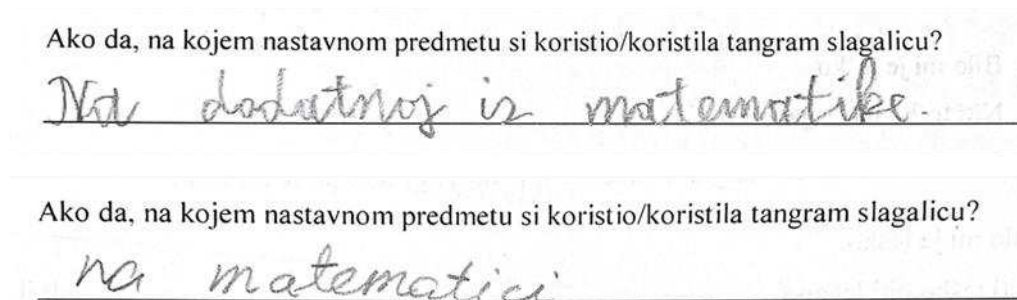 Ako da, na kojem nastavnom predmetu si koristio/koristila tangram slagalicu?
Na dodatnoj iz matematike.
Ako da, na kojem nastavnom predmetu si koristio/koristila tangram slagalicu?
na matematici